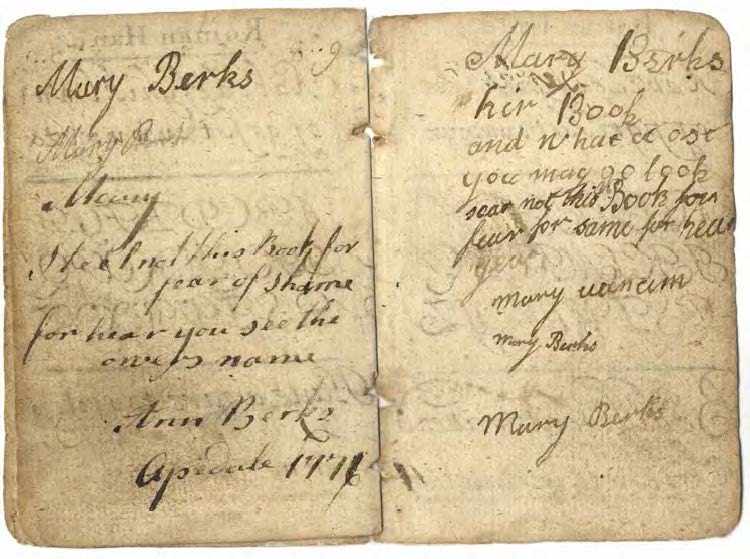 Mary Berks
Mary
Steel not this Book for
fear of shame
for hear you see the
owers name
Ann Berks
Apedale 177
Mary Berks
her Book
and what a cost
you may go look
sear not this Book for
fear for same for hear
year
Mary
Mary Berks
Mary Berks